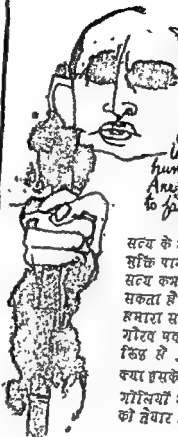 hun
Are
to f
सत्य के
मुक्ति पा
सत्य कभ
सकता है
हमारा स
गौरव पव
सिद्ध हो
क्या इसके
गोलियों
को तैयार